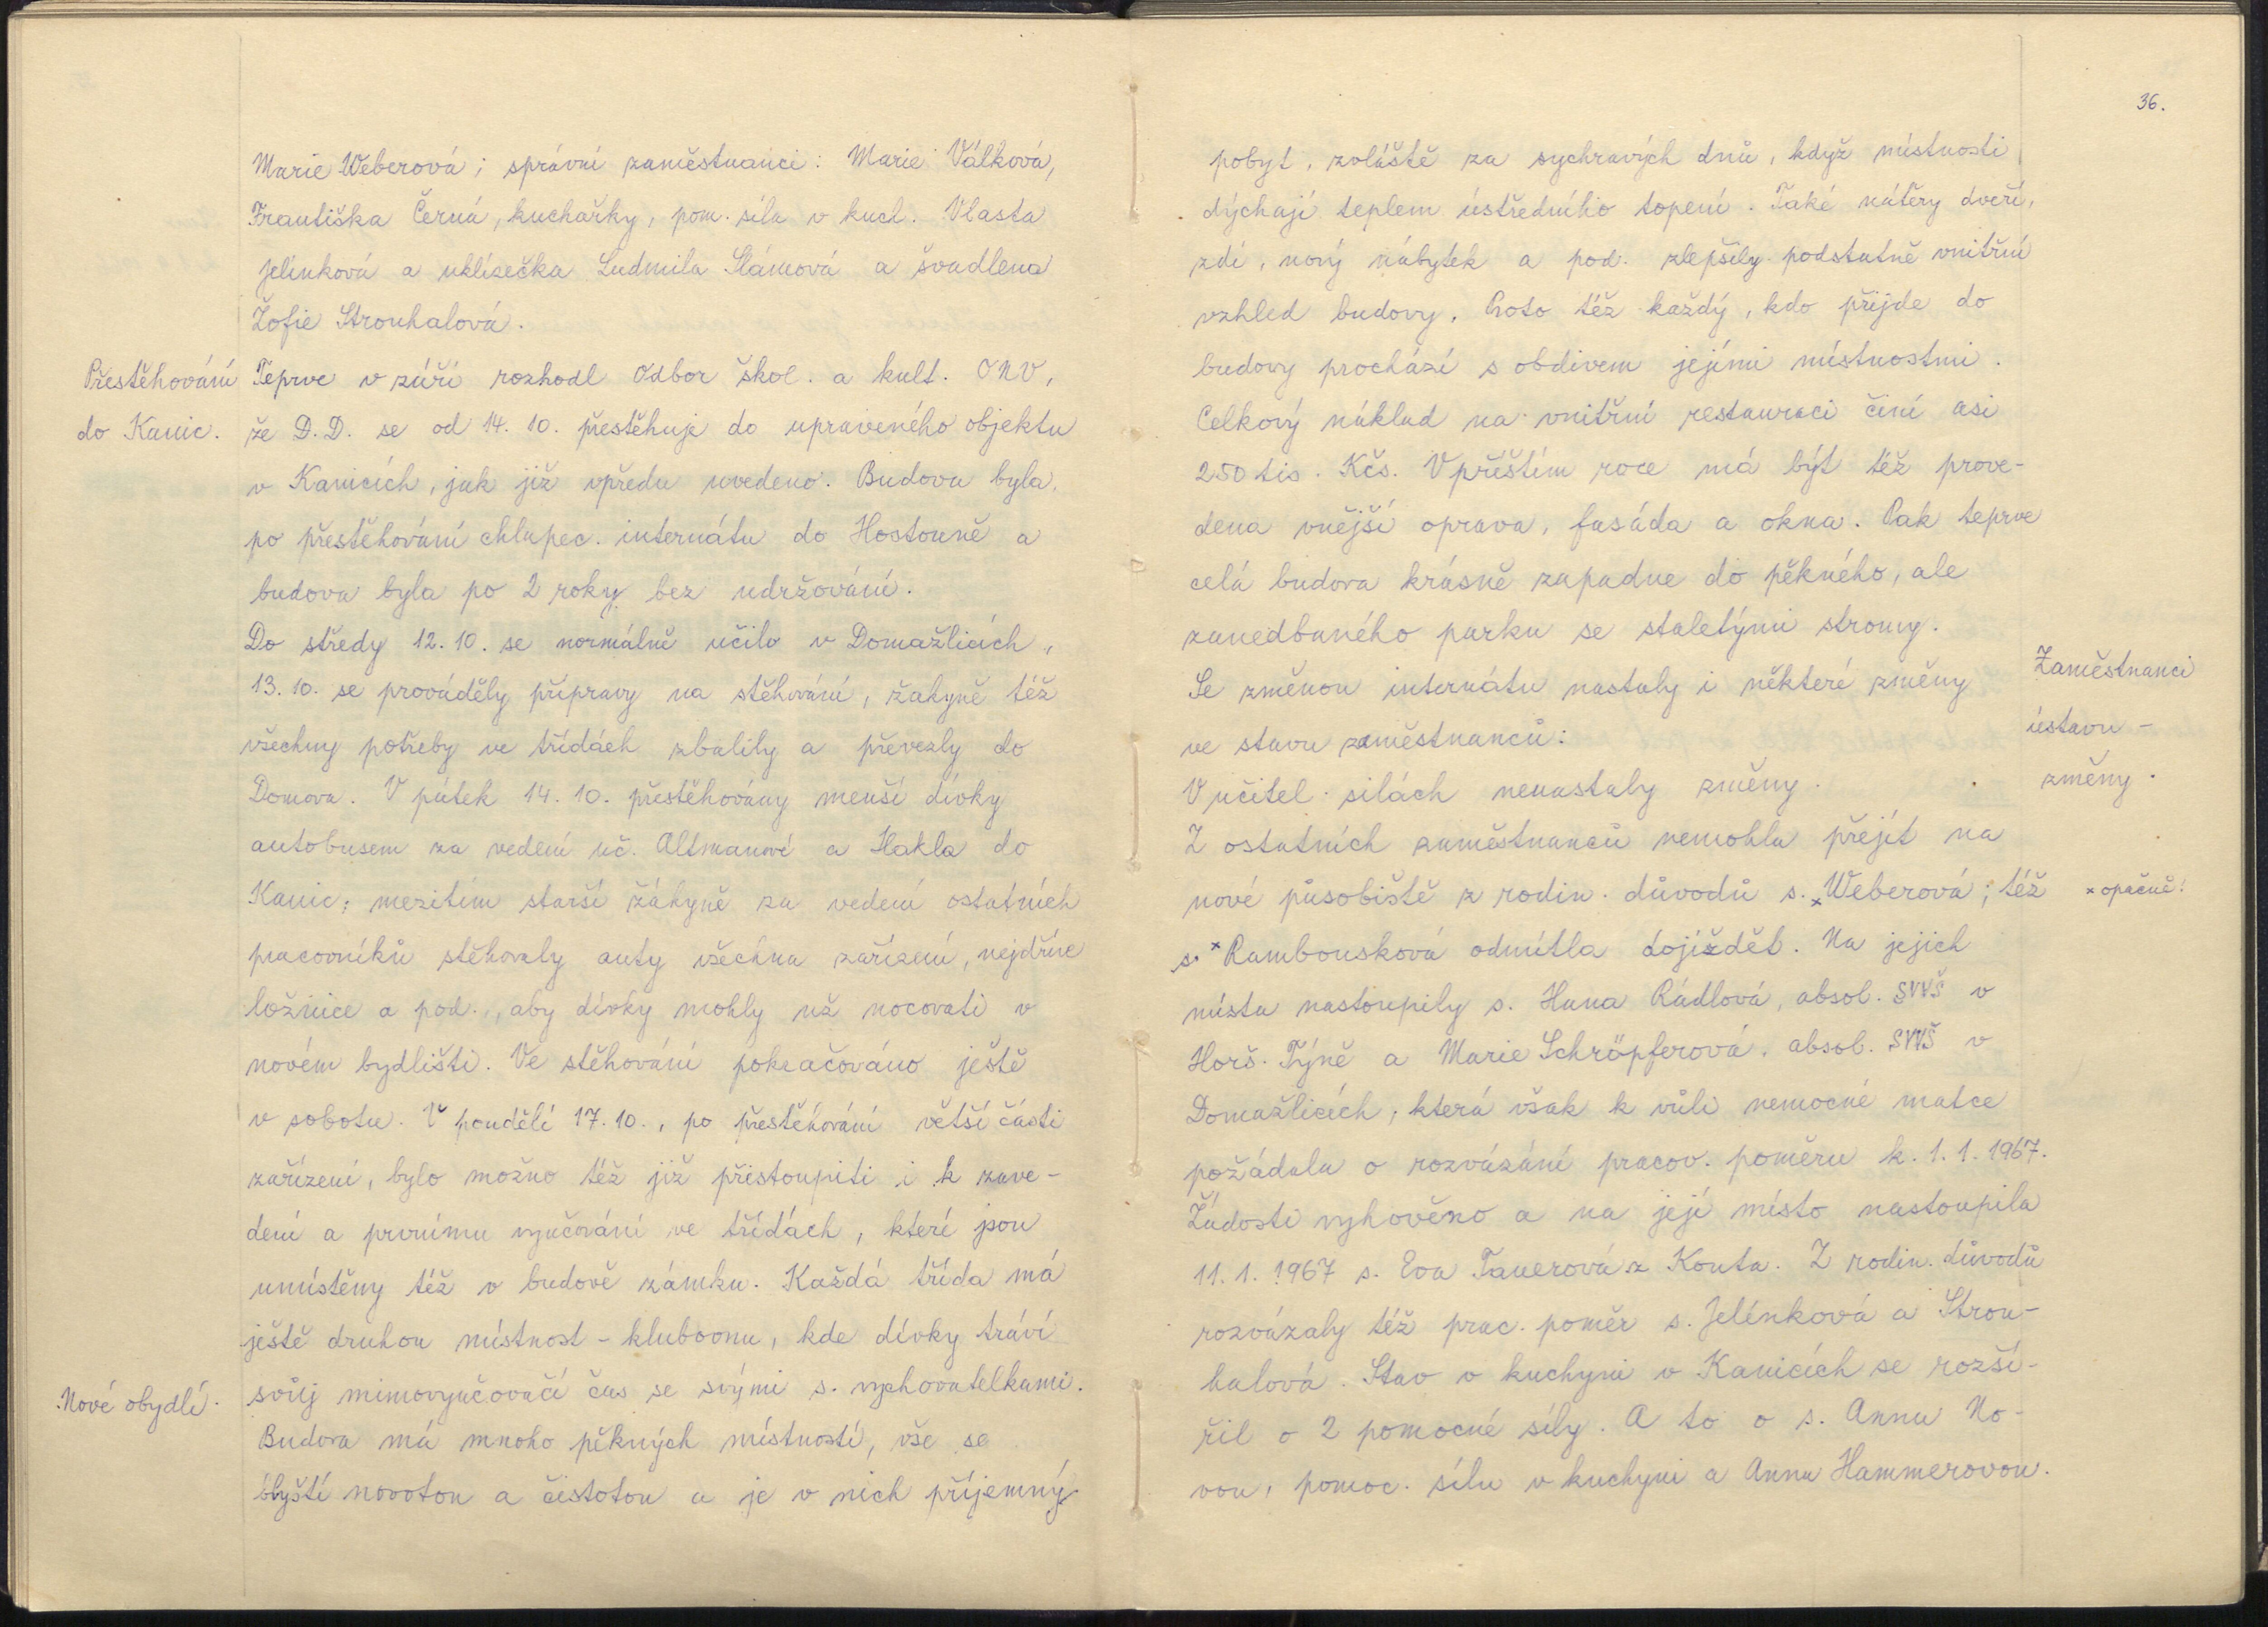 Marie Weberová; správní zaměstnanci: Marie Válková,
Františka Černá, kuchařky, pom. síla v kuch. Vlasta
Jelínková a uklízečka Ludmila Slámová a švadlena
Žofie Strouhalová.
Přestěhování
do Kanic.
Teprve v září rozhodl Odbor škol. a kult. ONV,
že D.D. se od 14. 10. přestěhuje do upraveného objektu
v Kanicích, jak již vpředu uvedeno. Budova byla
po přestěhování chlapec. internátu do Hostouně a
budova byla po 2 roky bez udržování.
Do středy 12. 10. se normálně učilo v Domažlicích,
13. 10. se prováděly přípravy na stěhování, žákyně též
všechny potřeby ve třídách zbalily a převezly do
Domova. V pátek 14. 10. přestěhovány menší dívky
autobusem za vedení uč. Altmanové a Hakla do
Kanic, mezitím starší žákyně za vedení ostatních
pracovníků stěhovaly auty všechna zařízení, nejdříve
ložnice a pod., aby dívky mohly už nocovati v
novém bydlišti. Ve stěhování pokračováno ještě
v sobotu. V pondělí 17. 10., po přestěhování větší části
zařízení, bylo možno též již přistoupiti i k zave-
dení a prvnímu vyučování ve třídách, které jsou
umístěny též v budově zámku. Každá třída má
ještě druhou místnost - klubovnu, kde dívky tráví
svůj mimovyučovací čas se svými s. vychovatelkami.
Nové obydlí.
Budova má mnoho pěkných místností, vše se
blyští novotou a čistotou a je v nich příjemný
36.
pobyt, zvláště za sychravých dnů, když místnosti
dýchají teplem ústředního topení. Také nátěry dveří,
zdí, nový nábytek a pod. zlepšily podstatně vnitřní
vzhled budovy. Proto též každý, kdo přijde do
budovy prochází s obdivem jejími místnostmi.
Celkový náklad na vnitřní restauraci činí asi
250 tis. Kčs. V příštím roce má být též prove-
dena vnější oprava, fasáda a okna. Pak teprve
celá budova krásně zapadne do pěkného, ale
zanedbaného parku se staletými stromy.
Zaměstnanci
ústavu -
změny.
Se změnou internátu nastaly i některé změny
ve stavu zaměstnanců:
V učitel. silách nenastaly změny.
Z ostatních zaměstnanců nemohla přejít na
nové působiště z rodin. důvodů s. x Weberová; též
x opačně!
s. x Rambousková odmítla dojíždět. Na jejich
místa nastoupily s. Hana Rádlová, absol. SVVŠ v
Horš. Týně a Marie Schröpferová, absol. SVVŠ v
Domažlicích, která však k vůli nemocné matce
požádala o rozvázání pracov. poměru k. 1. 1. 1967.
Žádosti vyhověno a na její místo nastoupila
11. 1. 1967 s. Eva Tauerová z Kouta. Z rodin. důvodů
rozvázaly též prac. poměr s. Jelínková a Strou-
halová. Stav v kuchyni v Kanicích se rozší-
řil o 2 pomocné síly. A to o s. Annu No-
vou, pomoc. sílu v kuchyni a Annu Hammerovou.